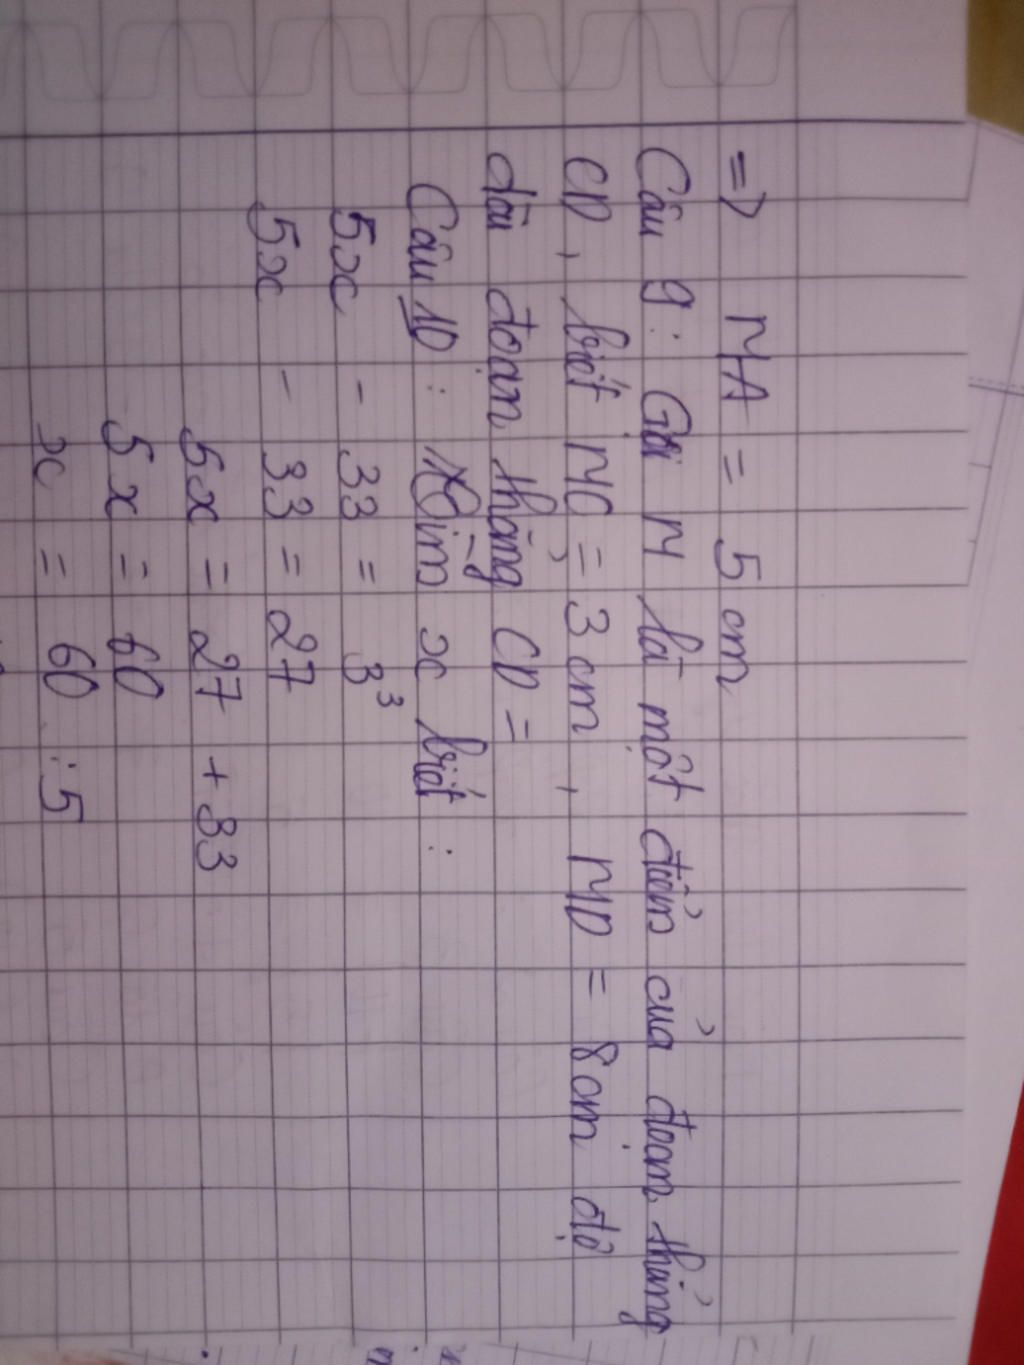 => MA = 5 cm
Câu 9: Gọi M là một điểm của đoạn thẳng
CD, biết MC = 3 cm, MD = 8 cm độ
dài đoạn thẳng CD =
Câu 10: Tìm x biết:
5x - 33 = 3³
5x - 33 = 27
5x = 27 + 33
5x = 60
x = 60 : 5